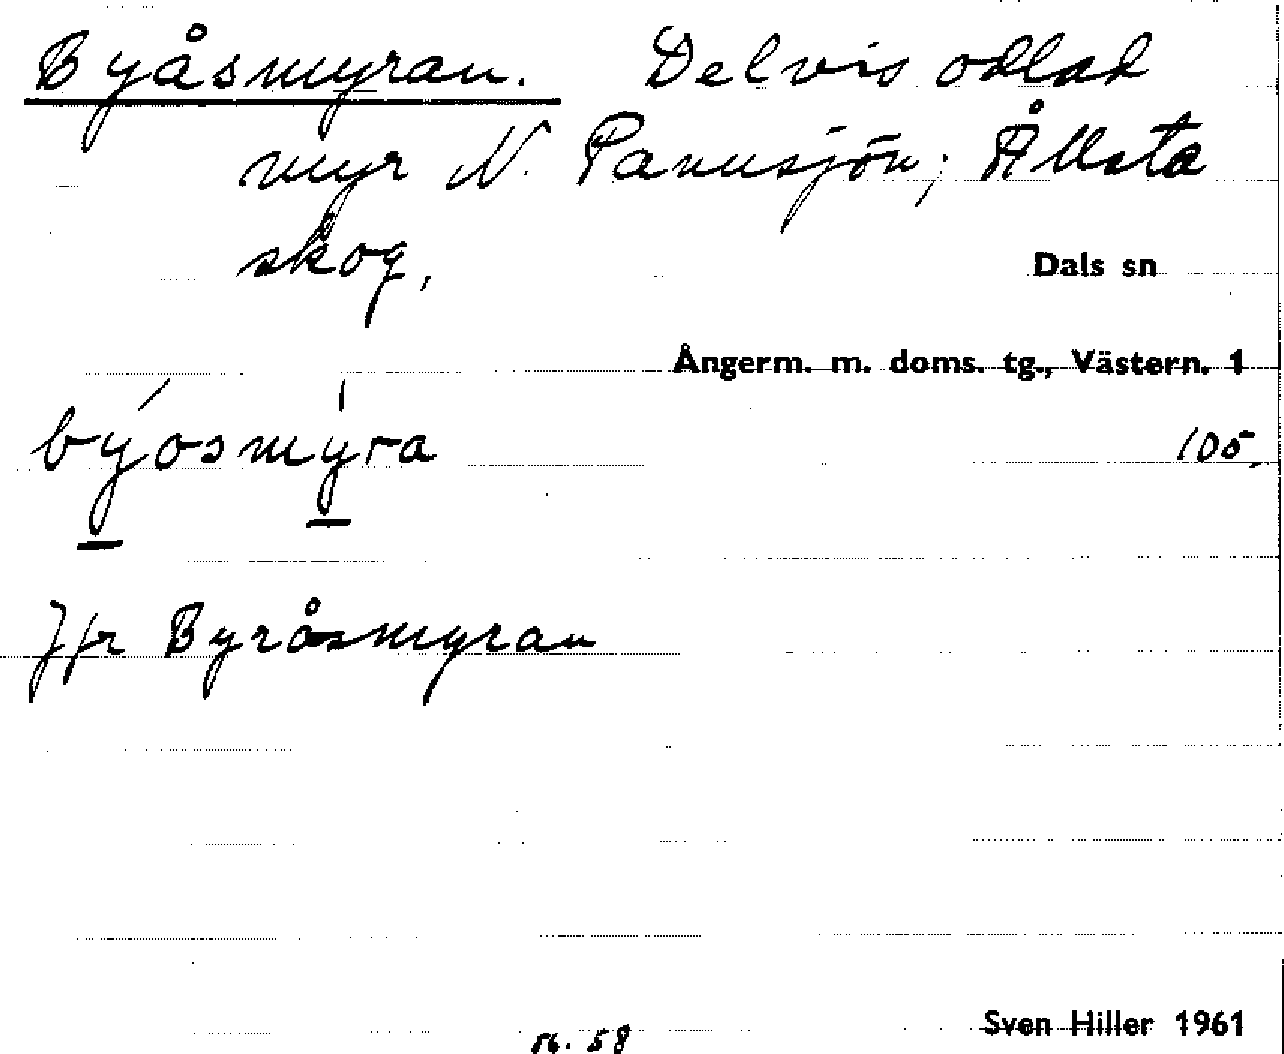 Byåsmyran. Delvis odlad
myr N. Pannsjön; Ållsta
skog.
Dals sn
Ångerm. m. doms. tg., Västern. 1
býosmýra
105.
Jfr Byråsmyran
Sven Hiller 1961
58